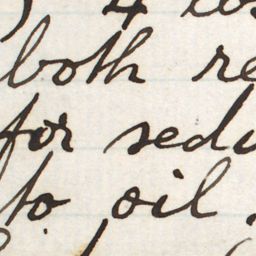 both re
for sedu
to oil